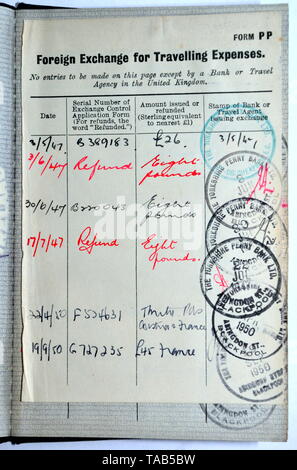 FORM PP
Foreign Exchange for Travelling Expenses.
No entries to be made on this page except by a Bank or Travel
Agency in the United Kingdom.
Date
Serial Number of
Exchange Control
Application Form
(For refunds, the
word "Refunded.")
Amount issued or
refunded
(Sterling equivalent
to nearest £1)
Stamp of Bank or
Travel Agent
issuing exchange
3/5/47. B389183 £26. 3/5/47.
3/6/47 Refund Eight
pounds
30/6/47 B220043 Eight
pounds
17/7/47 Refund Eight
pounds.
22/4/50 F524631
France
19/9/50 G727235 £45 France
THE YORKSHIRE PENNY BANK LTD.
THE YORKSHIRE PENNY BANK LTD.
ABINGDON ST. BLACKPOOL
ABINGDON ST. BLACKPOOL
1950
alamy
Image ID: TAB5BW
www.alamy.com